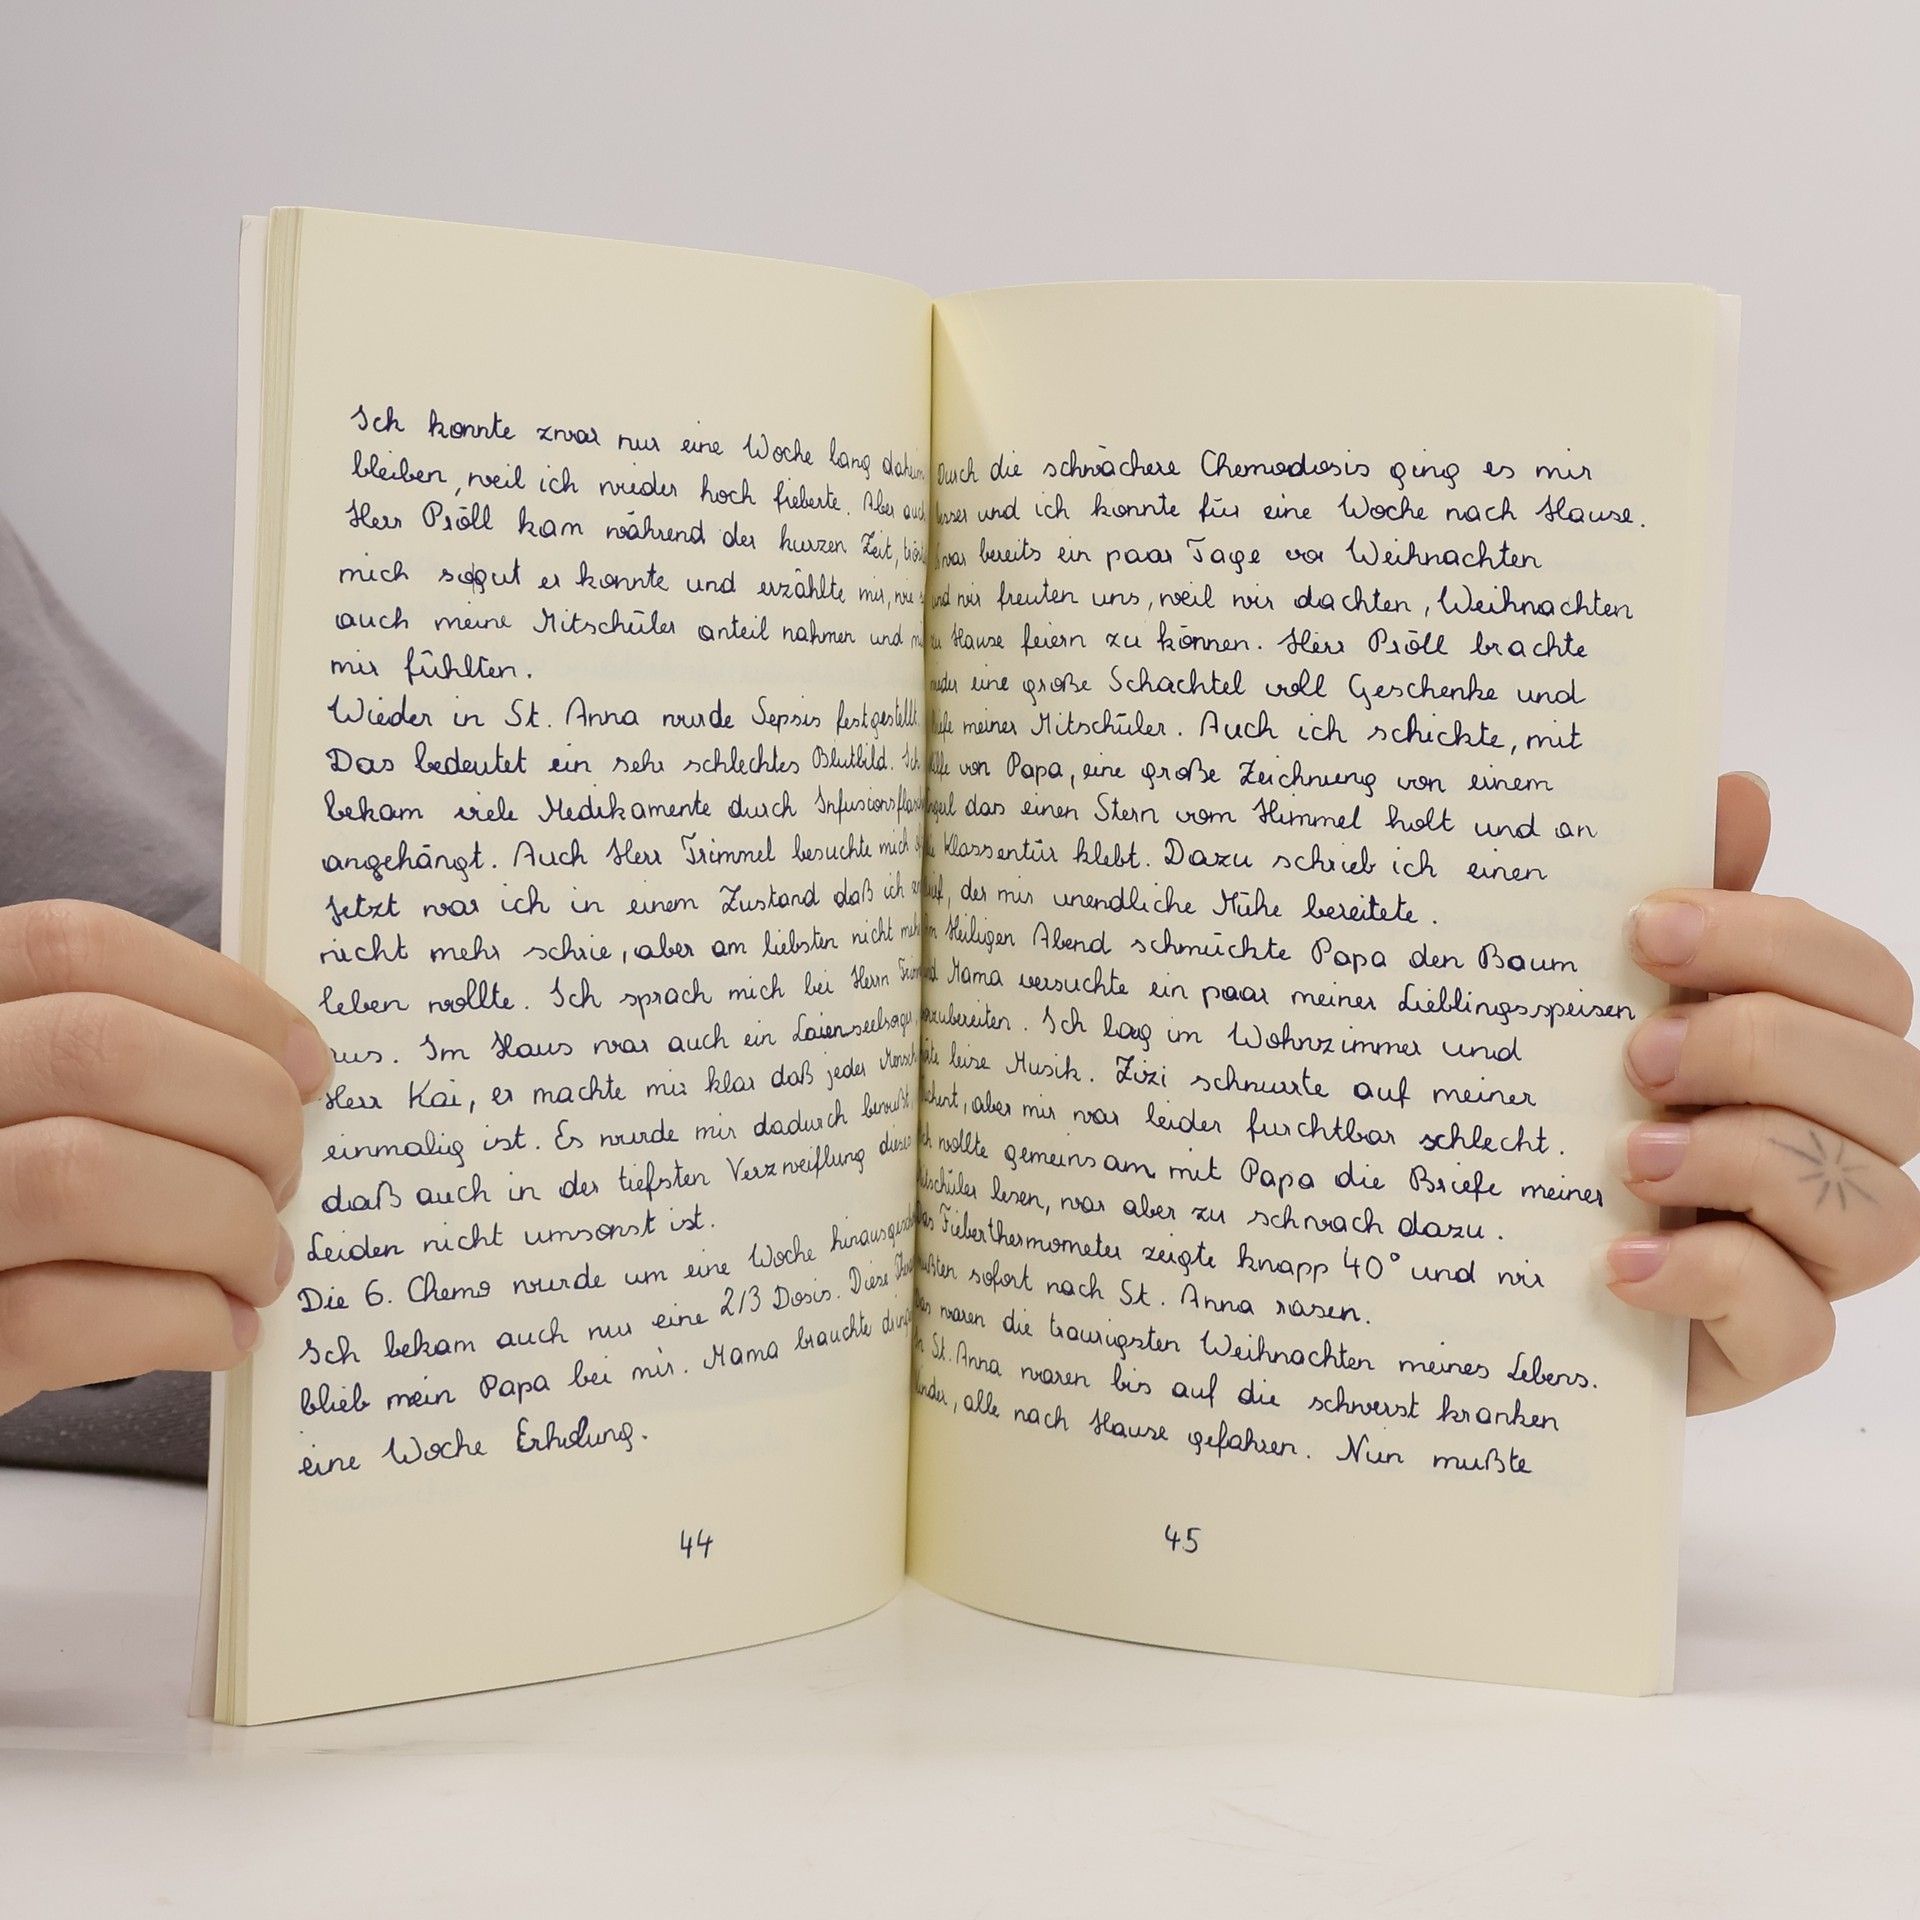 Ich konnte zwar nur eine Woche lang daheim
bleiben, weil ich wieder hoch fieberte. Aber auch
Herr Pröll kam während der kurzen Zeit,
mich sogut er konnte und erzählte mir, wie
auch meine Mitschüler anteil nahmen und
mir fühlten.
Wieder in St. Anna wurde Sepsis festgestellt.
Das bedeutet ein sehr schlechtes Blutbild. Ich
bekam viele Medikamente durch
angehängt. Auch Herr Trimmel besuchte mich
Jetzt war ich in einem Zustand daß ich
nicht mehr schrie, aber am liebsten nicht mehr
leben wollte. Ich sprach mich bei Herrn
aus. Im Haus war auch ein Laienseelsorger,
Herr Kai, er machte mir klar daß jeder Mensch
einmalig ist. Es wurde mir dadurch bewußt,
daß auch in der tiefsten Verzweiflung dieses
Leiden nicht umsonst ist.
Die 6. Chemo wurde um eine Woche
Ich bekam auch nur eine 2/3 Dosis. Diese
blieb mein Papa bei mir. Mama brauchte
eine Woche Erholung.
44
Durch die schwächere Chemodosis ging es mir
besser und ich konnte für eine Woche nach Hause.
war bereits ein paar Tage vor Weihnachten
und wir freuten uns, weil wir dachten, Weihnachten
zu Hause feiern zu können. Herr Pröll brachte
wieder eine große Schachtel voll Geschenke und
meiner Mitschüler. Auch ich schickte, mit
von Papa, eine große Zeichnung von einem
das einen Stern vom Himmel holt und an
Klassentür klebt. Dazu schrieb ich einen
der mir unendliche Mühe bereitete.
Heiligen Abend schmückte Papa den Baum
und Mama versuchte ein paar meiner Lieblingsspeisen
Ich lag im Wohnzimmer und
leise Musik. Zizi schnurrte auf meiner
aber mir war leider furchtbar schlecht.
Ich wollte gemeinsam mit Papa die Briefe meiner
Mitschüler lesen, war aber zu schwach dazu.
Das Fieberthermometer zeigte knapp 40° und wir
mußten sofort nach St. Anna rasen.
Das waren die traurigsten Weihnachten meines Lebens.
In St. Anna waren bis auf die schwerst kranken
Kinder, alle nach Hause gefahren. Nun mußte
45